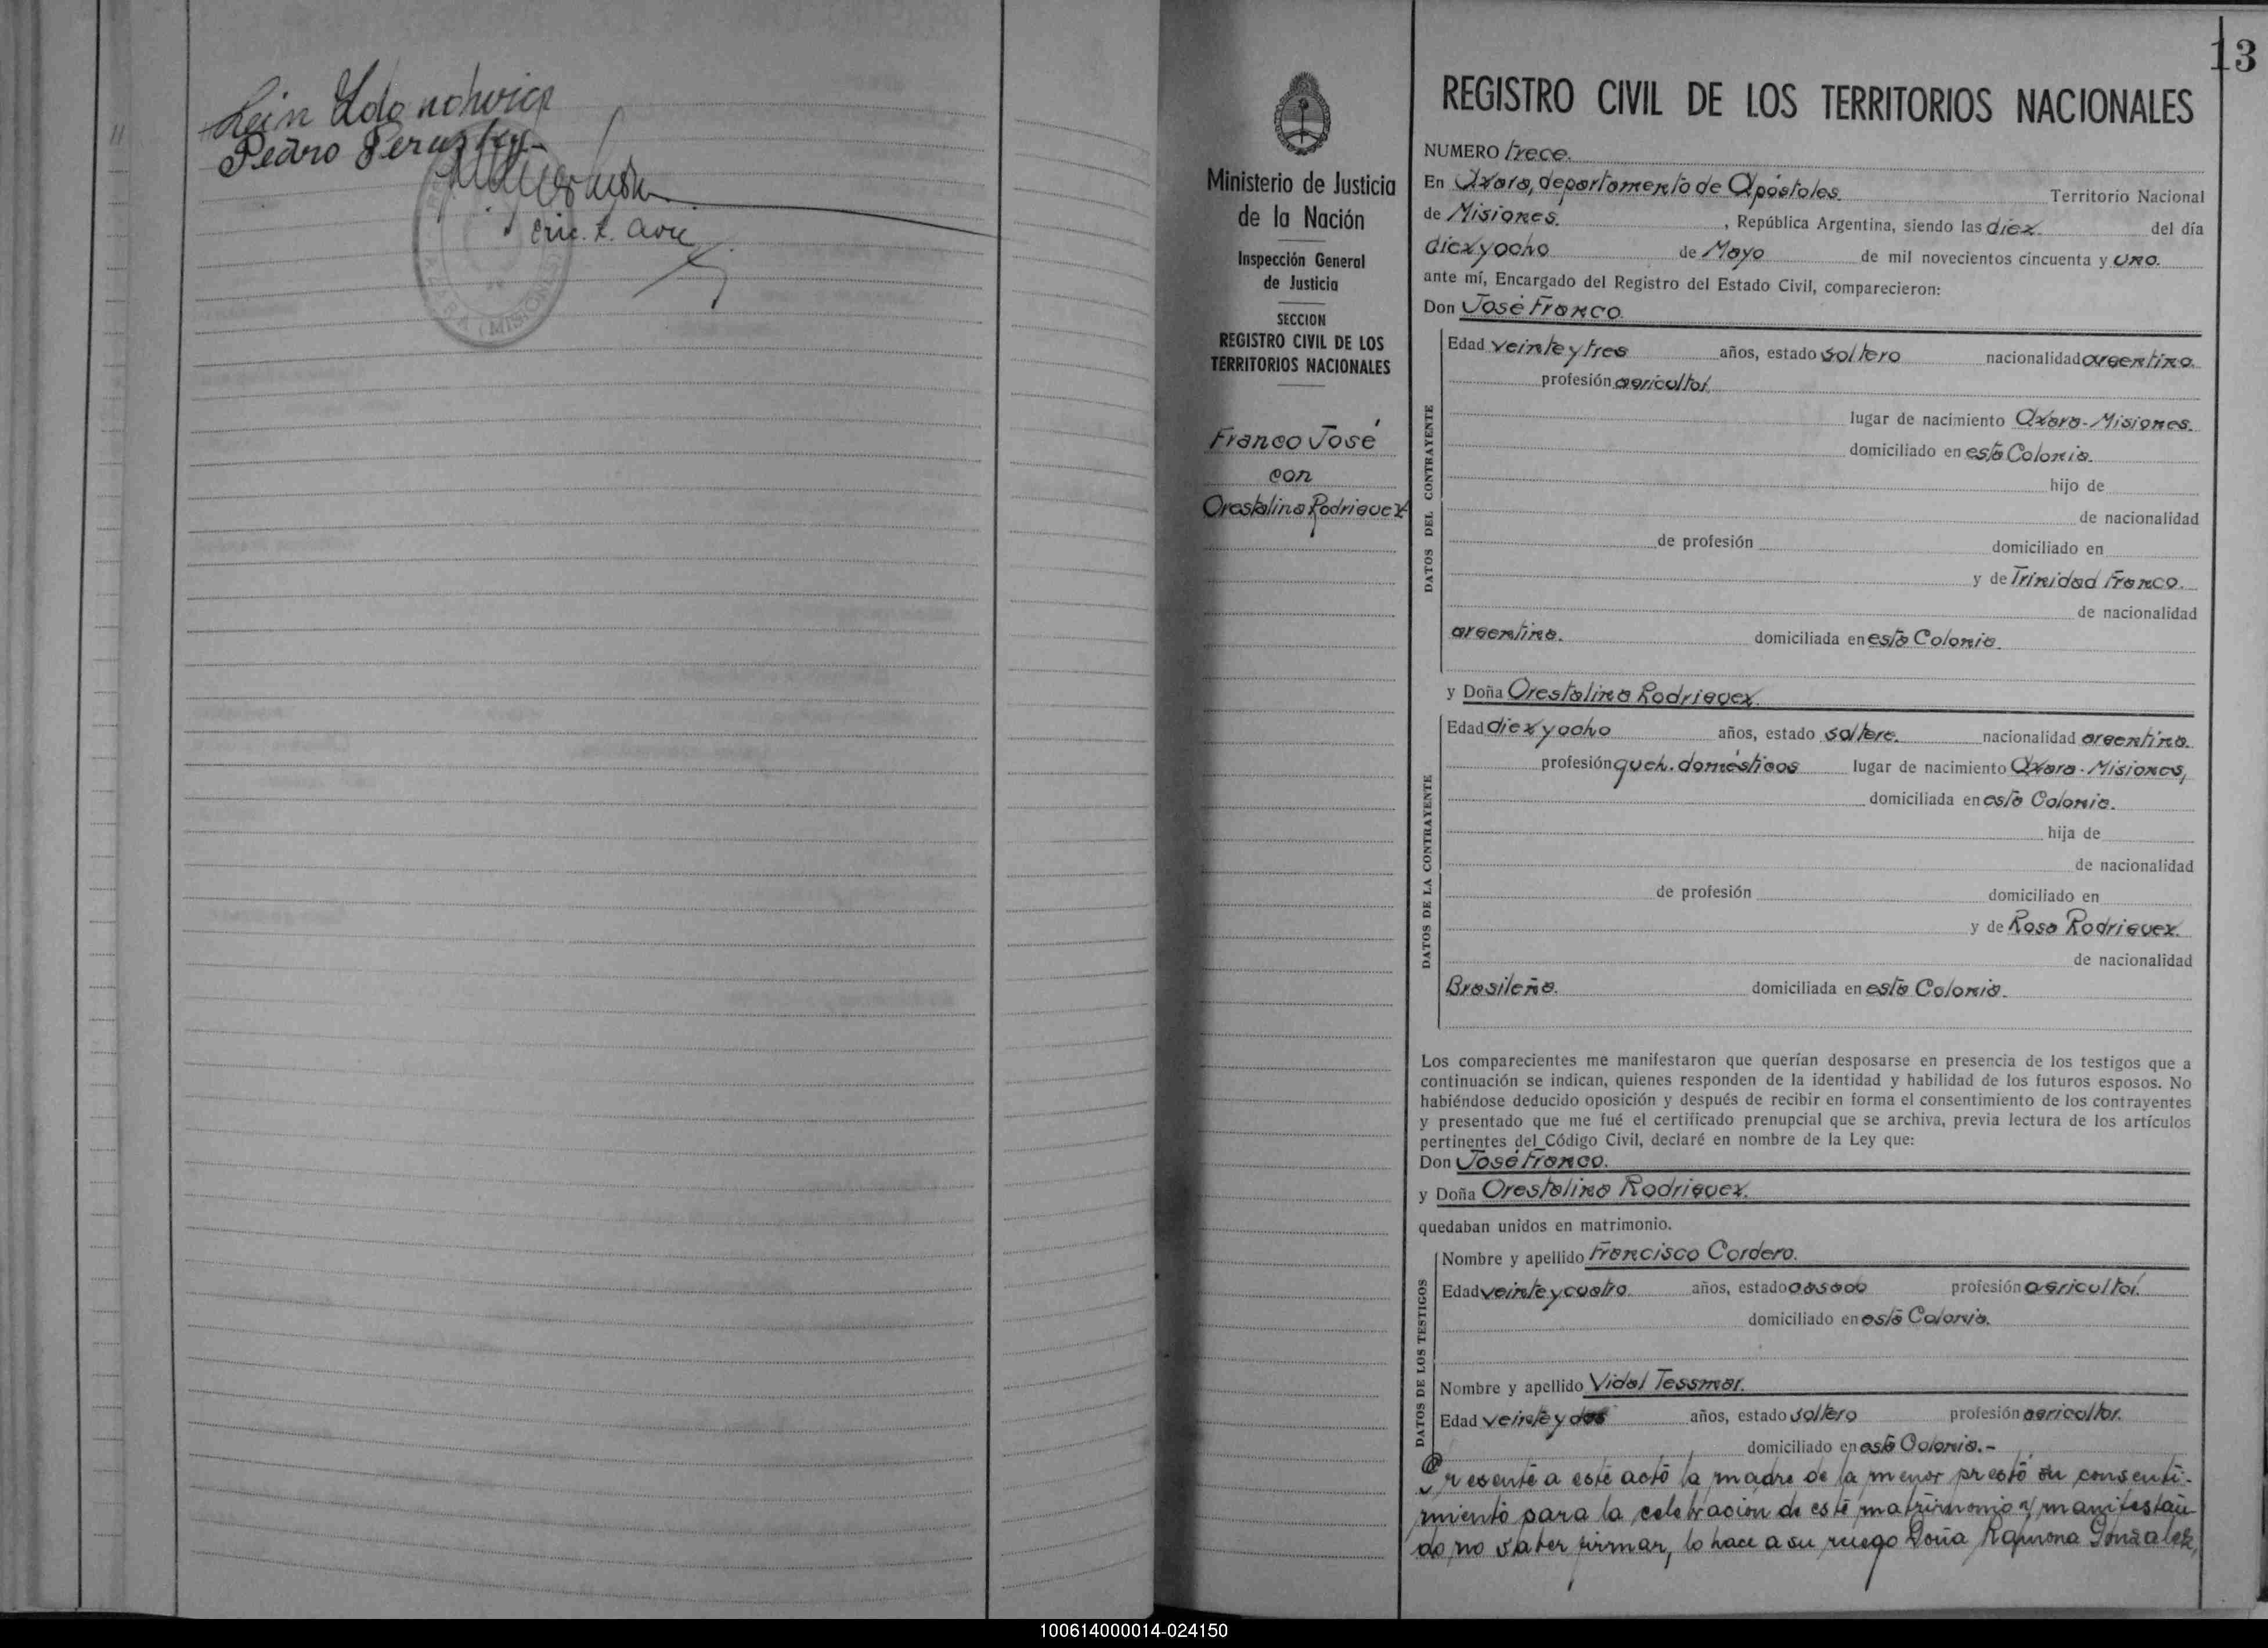 Pedro
Enc. R. Civil
AZARA (MISIONES)
13
Ministerio de Justicia
de la Nación
Inspección General
de Justicia
SECCION
REGISTRO CIVIL DE LOS
TERRITORIOS NACIONALES
Franco José
con
Orestalina Rodriguez
REGISTRO CIVIL DE LOS TERRITORIOS NACIONALES
NUMERO trece.
En Azara, departamento de Apóstoles. Territorio Nacional
de Misiones. , República Argentina, siendo las diez. del día
diezyocho de Mayo de mil novecientos cincuenta y uno.
ante mí, Encargado del Registro del Estado Civil, comparecieron:
Don José Franco
DATOS DEL CONTRAYENTE
Edad veinteytres años, estado soltero nacionalidad argentina.
profesión agricultor.
lugar de nacimiento Azara-Misiones.
domiciliado en esta Colonia.
hijo de
de nacionalidad
de profesión domiciliado en
y de Trinidad Franco.
de nacionalidad
argentina. domiciliada en esta Colonia.
y Doña Orestalina Rodriguez.
DATOS DE LA CONTRAYENTE
Edad diezyocho años, estado soltera. nacionalidad argentina.
profesión queh. domésticos lugar de nacimiento Azara-Misiones,
domiciliada en esta Colonia.
hija de
de nacionalidad
de profesión domiciliado en
y de Rosa Rodriguez.
de nacionalidad
Brasileña. domiciliada en esta Colonia.
Los comparecientes me manifestaron que querían desposarse en presencia de los testigos que a
continuación se indican, quienes responden de la identidad y habilidad de los futuros esposos. No
habiéndose deducido oposición y después de recibir en forma el consentimiento de los contrayentes
y presentado que me fué el certificado prenupcial que se archiva, previa lectura de los artículos
pertinentes del Código Civil, declaré en nombre de la Ley que:
Don José Franco.
y Doña Orestalina Rodriguez.
quedaban unidos en matrimonio.
DATOS DE LOS TESTIGOS
Nombre y apellido Francisco Cordero.
Edad veinteycuatro. años, estado casado profesión agricultor.
domiciliado en esta Colonia.
Nombre y apellido Vidal Tessmar.
Edad veinteydos años, estado soltero profesión agricultor.
domiciliado en esta Colonia.-
Presente a este acto la madre de la menor prestó su consenti-
miento para la celebracion de este matrimonio y manifestan
do no saber firmar, lo hace a su ruego Doña Ramona Gonzalez,
100614000014-024150